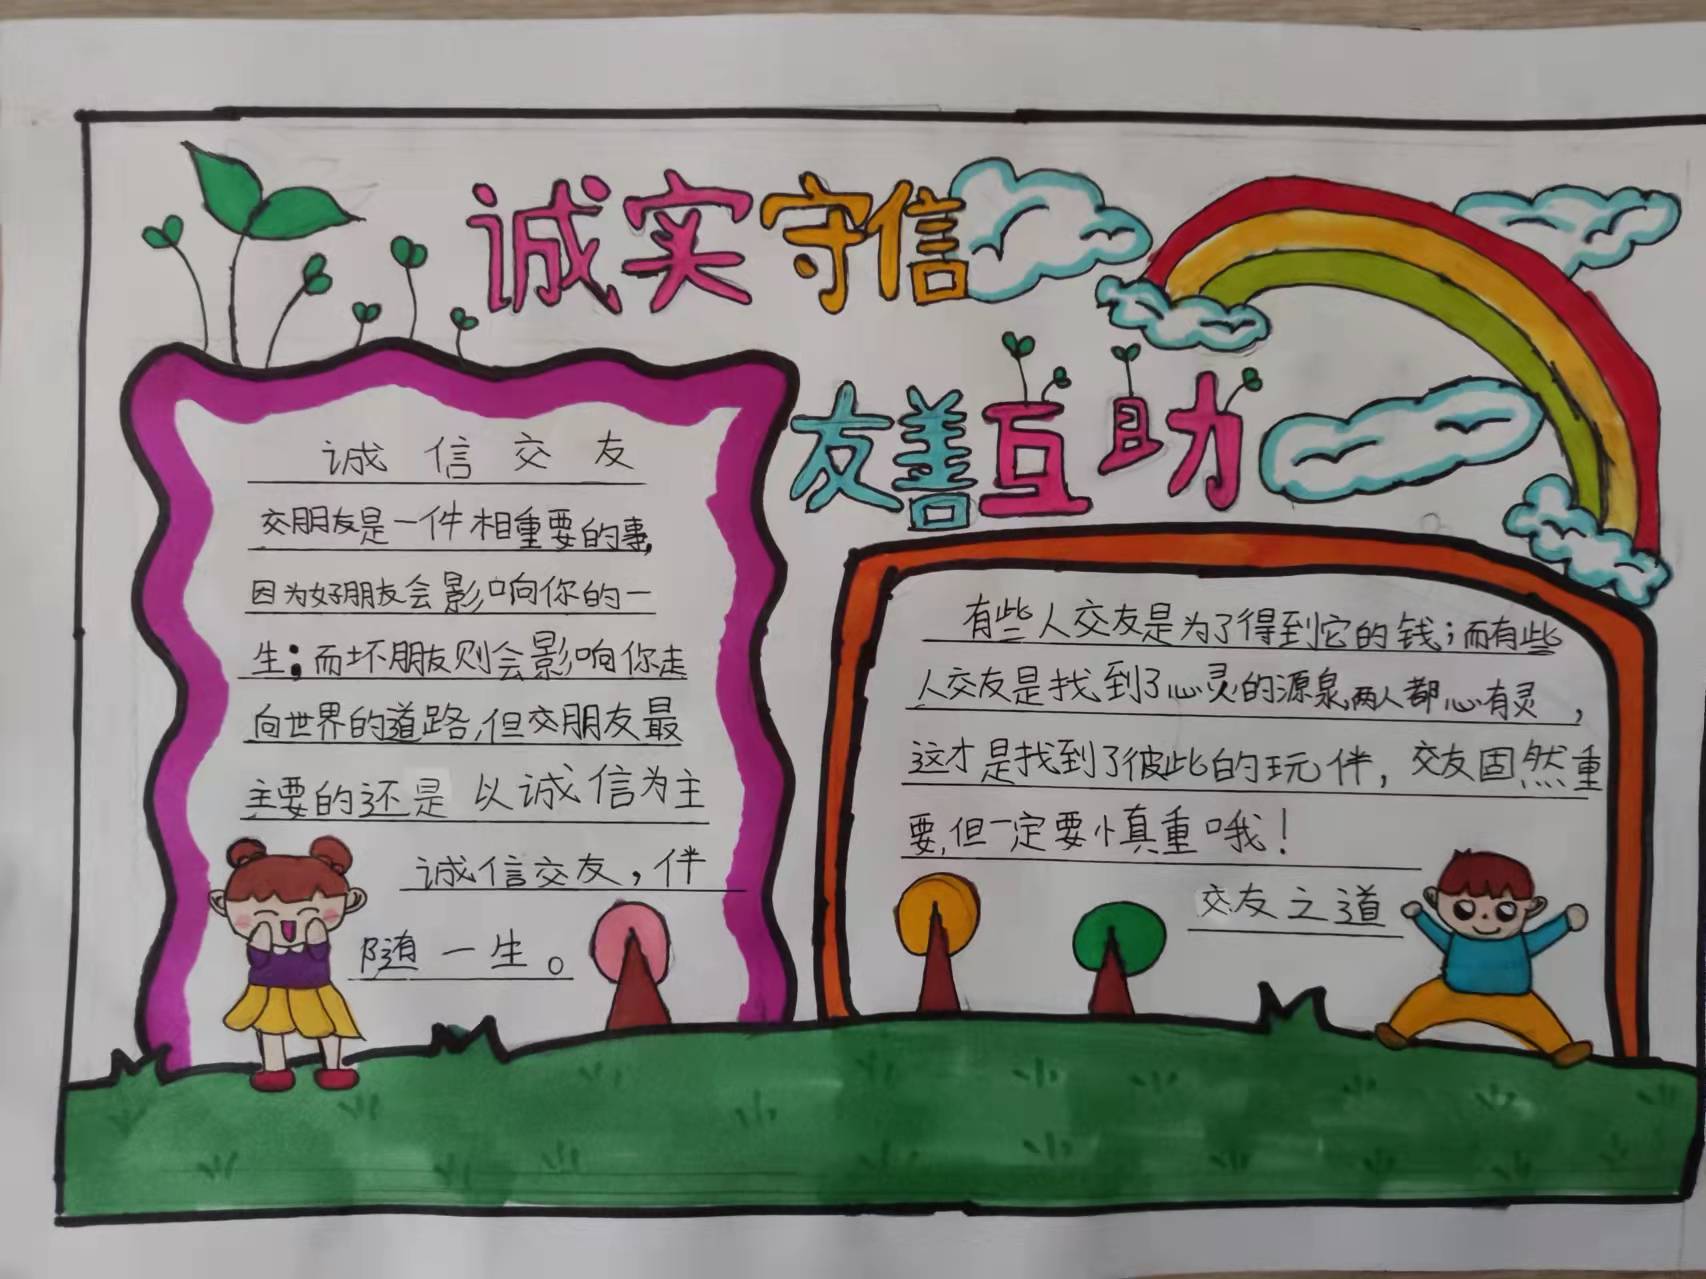 诚实守信
友善互助
诚信交友
交朋友是一件相重要的事,
因为好朋友会影响你的一
生;而坏朋友则会影响你走
向世界的道路,但交朋友最
主要的还是以诚信为主
诚信交友,伴
随一生。
有些人交友是为了得到它的钱;而有些
人交友是找到了心灵的源泉,两人都心有灵,
这才是找到了彼此的玩伴,交友固然重
要,但一定要慎重哦!
交友之道